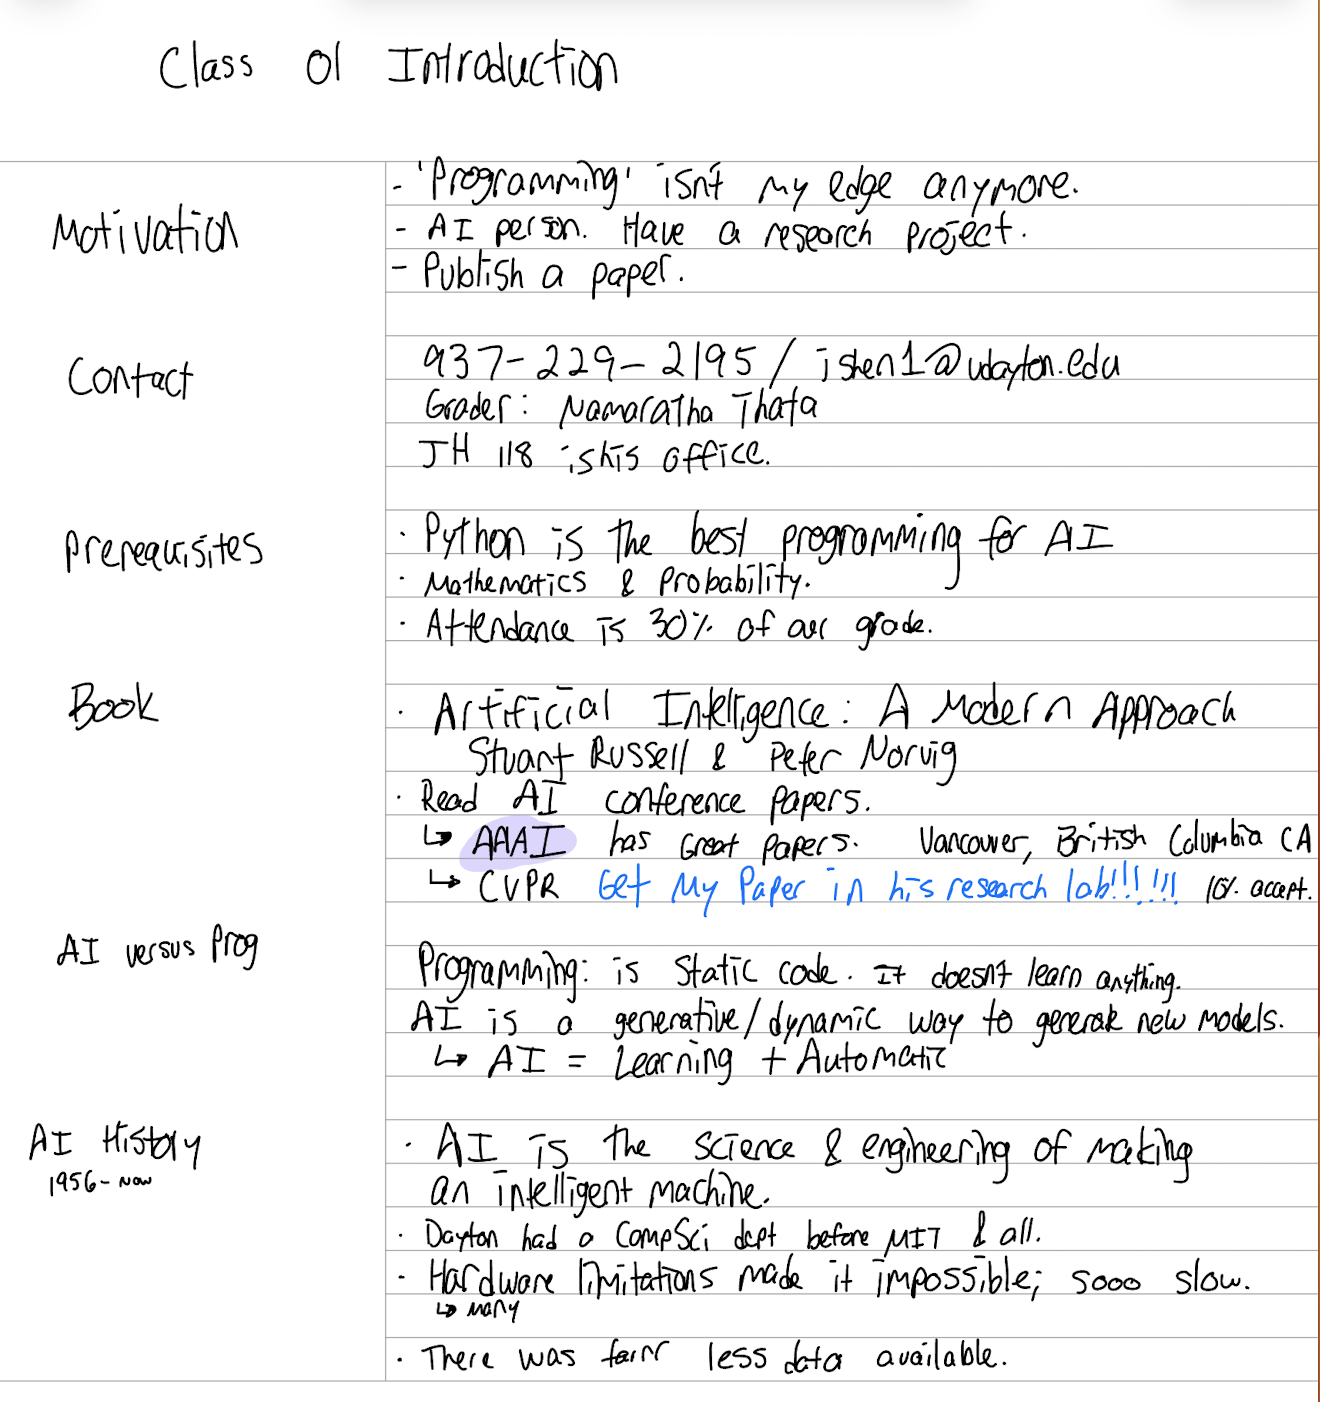 Class 01 Introduction
Motivation
- 'Programming' isn't my edge anymore.
- AI person. Have a research project.
- Publish a paper.
Contact
937-229-2195 / jshen1@udayton.edu
Grader: Namaratha Thata
JH 118 is his office.
Prerequisites
· Python is the best programming for AI
· Mathematics & Probability.
· Attendance is 30% of our grade.
Book
· Artificial Intelligence: A Modern Approach
Stuart Russell & Peter Norvig
· Read AI conference papers.
↳ AAAI has Great Papers. Vancouver, British Columbia CA
↳ CVPR Get My Paper in his research lab!!!!!! 10% accept.
AI versus Prog
Programming: is static code. It doesn't learn anything.
AI is a generative/dynamic way to generate new models.
↳ AI = Learning + Automatic
AI History
1956-Now
· AI is the science & engineering of making
an intelligent machine.
· Dayton had a CompSci dept before MIT & all.
· Hardware limitations made it impossible; sooo slow.
↳ many
· There was less data available.